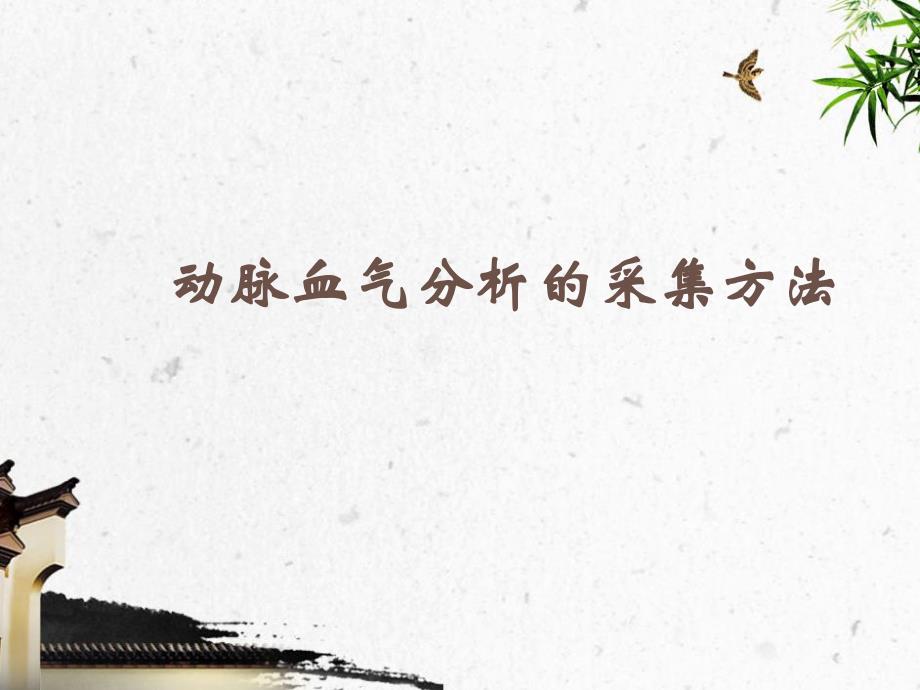 动脉血气分析的采集方法